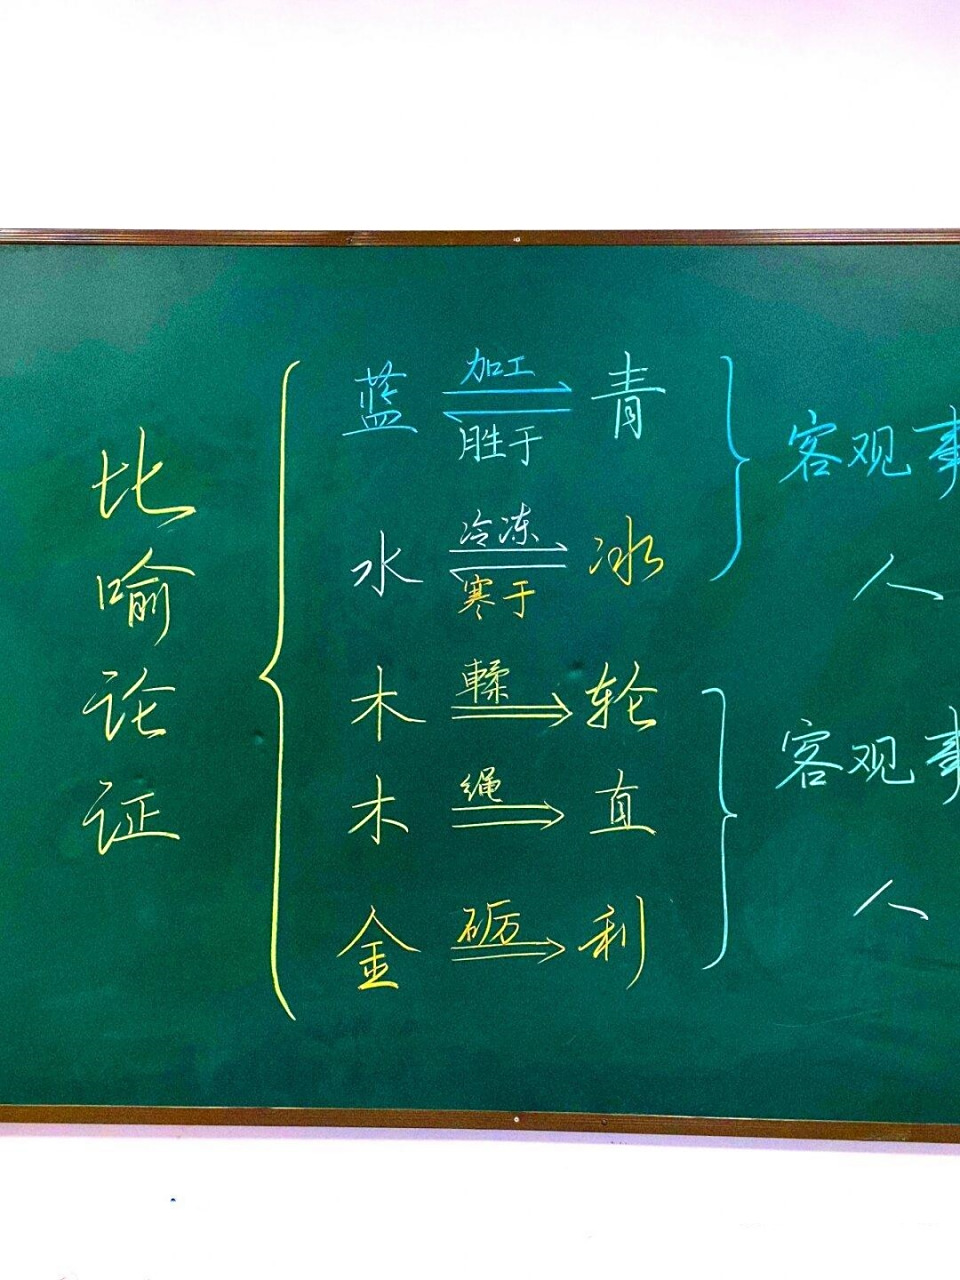 比喻论证
蓝 加工 胜于 青
水 冷冻 寒于 冰
木 輮 轮
木 绳 直
金 砺 利
客观事
人
客观事
人